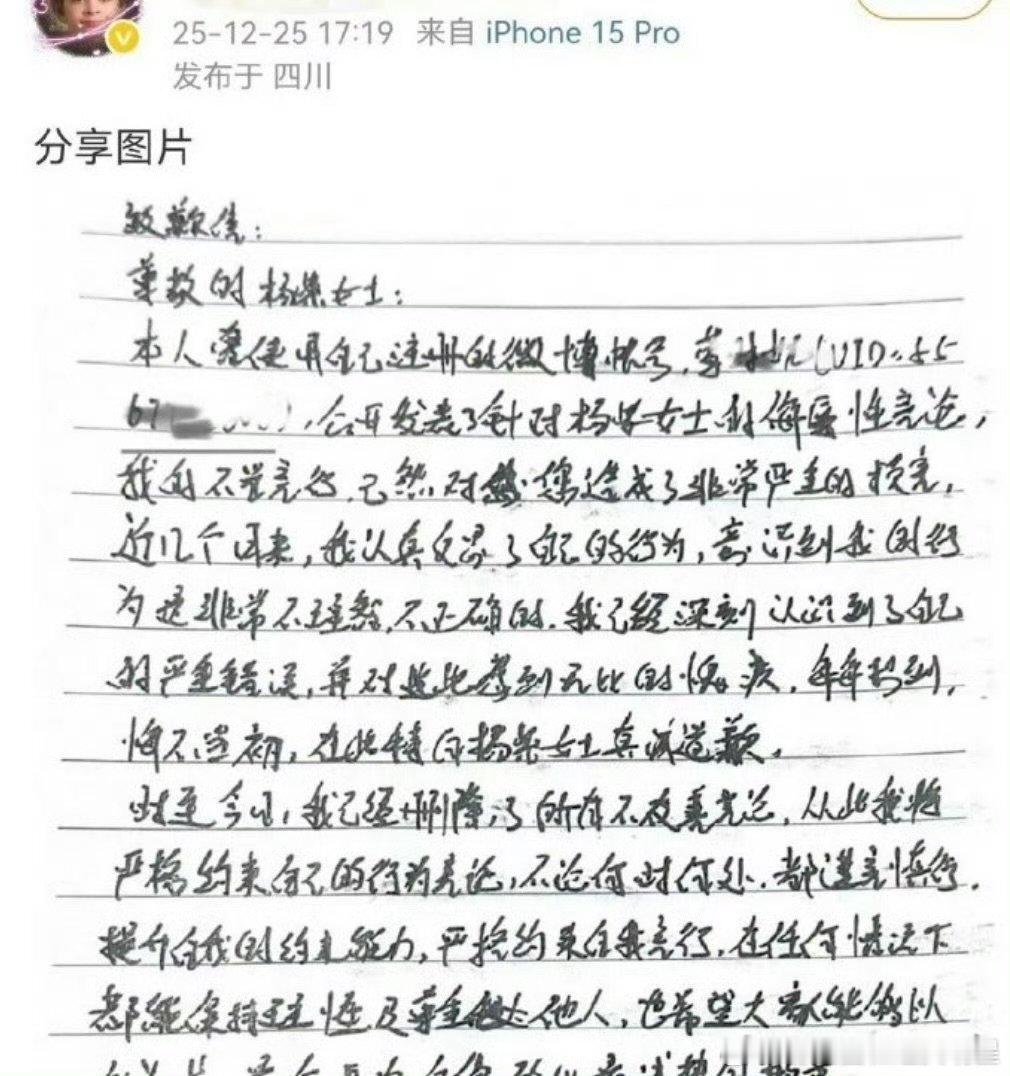 25-12-25 17:19 来自 iPhone 15 Pro
发布于 四川
分享图片
致歉信:
尊敬的杨紫女士:
本人曾使用自己注册的微博帐号, (UID:55
67 ),公开发表了针对杨紫女士的侮辱性言论,
我的不当言行,已然对您造成了非常严重的损害,
近几个月来,我认真反思了自己的行为,意识到我的行
为是非常不理智,不正确的,我已经深刻认识到了自己
的严重错误,并对此感到无比的愧疚,每每想到,
悔不当初,在此特向杨紫女士真诚道歉。
时至今日,我已经删除了所有不友善言论,从此我将
严格约束自己的行为言论,不论何时何处,都谨言慎行,
提升自我的约束能力,严格约束自我言行,在任何情况下
都能保持理性及尊重他人,也希望大家能够以